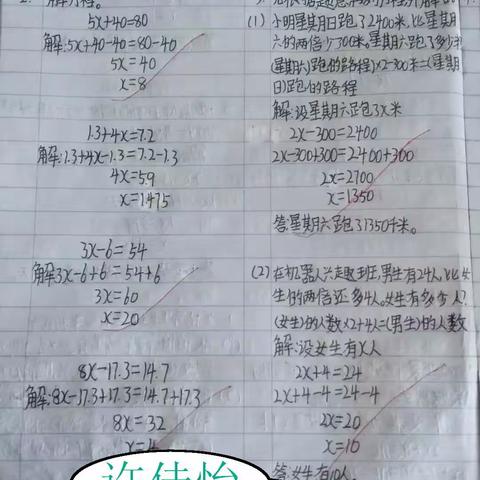 5x+40=80
解:5x+40-40=80-40
5x=40
x=8
1.3+4x=7.2
解:1.3+4x-1.3=7.2-1.3
4x=5.9
x=1.475
3x-6=54
解3x-6+6=54+6
3x=60
x=20
8x-17.3=14.7
解:8x-17.3+17.3=14.7+17.3
8x=32
x=4
许佳怡
(1)小明星期日跑了2400米,比星期
六的两倍少300米,星期六跑了多少米
(星期六)跑的路程)×2-300米=(星期
日)跑的路程
解:设星期六跑了x米
2x-300=2400
2x-300+300=2400+300
2x=2700
x=1350
答:星期六跑了1350千米。
(2)在机器人兴趣班,男生有24人,比女
生的两倍还多4人。女生有多少人?
(女生)的人数×2+4人=(男生)的人数
解:设女生有x人
2x+4=24
2x+4-4=24-4
2x=20
x=10
答:女生有10人。